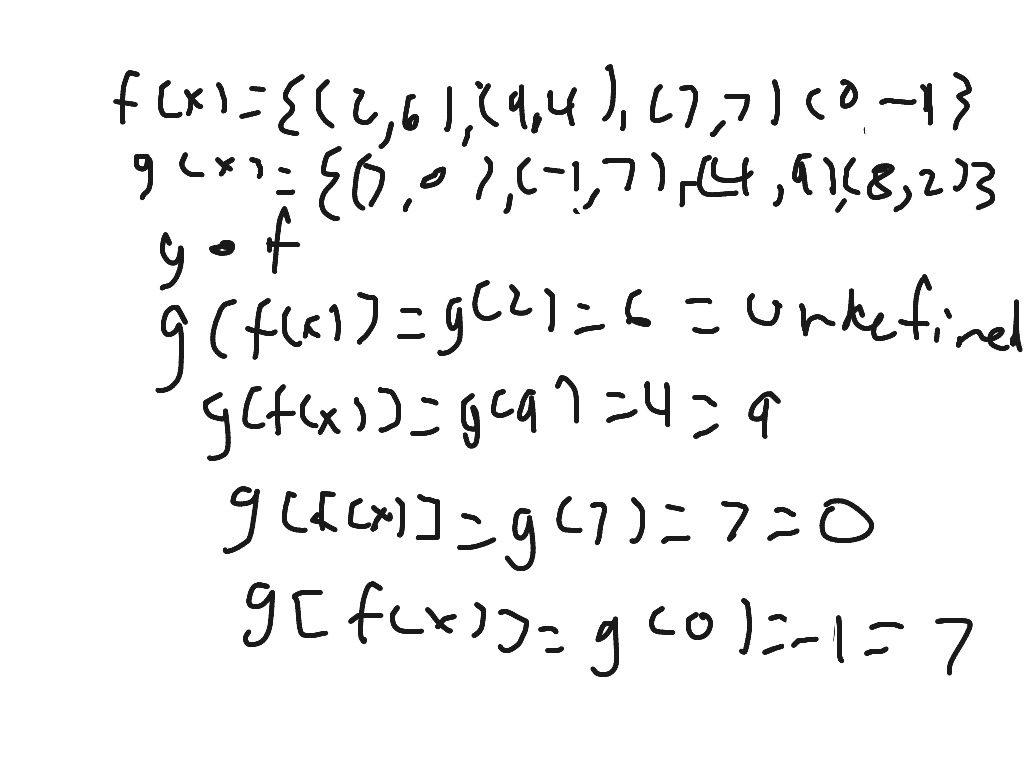 f(x)={(2,6),(9,4),(7,7)(0,-1}
g(x)={(7,0),(-1,7),(4,9),(8,2)}
g∘f
g(f(x))=g(2)=6=undefined
g(f(x))=g(9)=4=9
g(f(x)]=g(7)=7=0
g[f(x)]=g(0)=-1=7